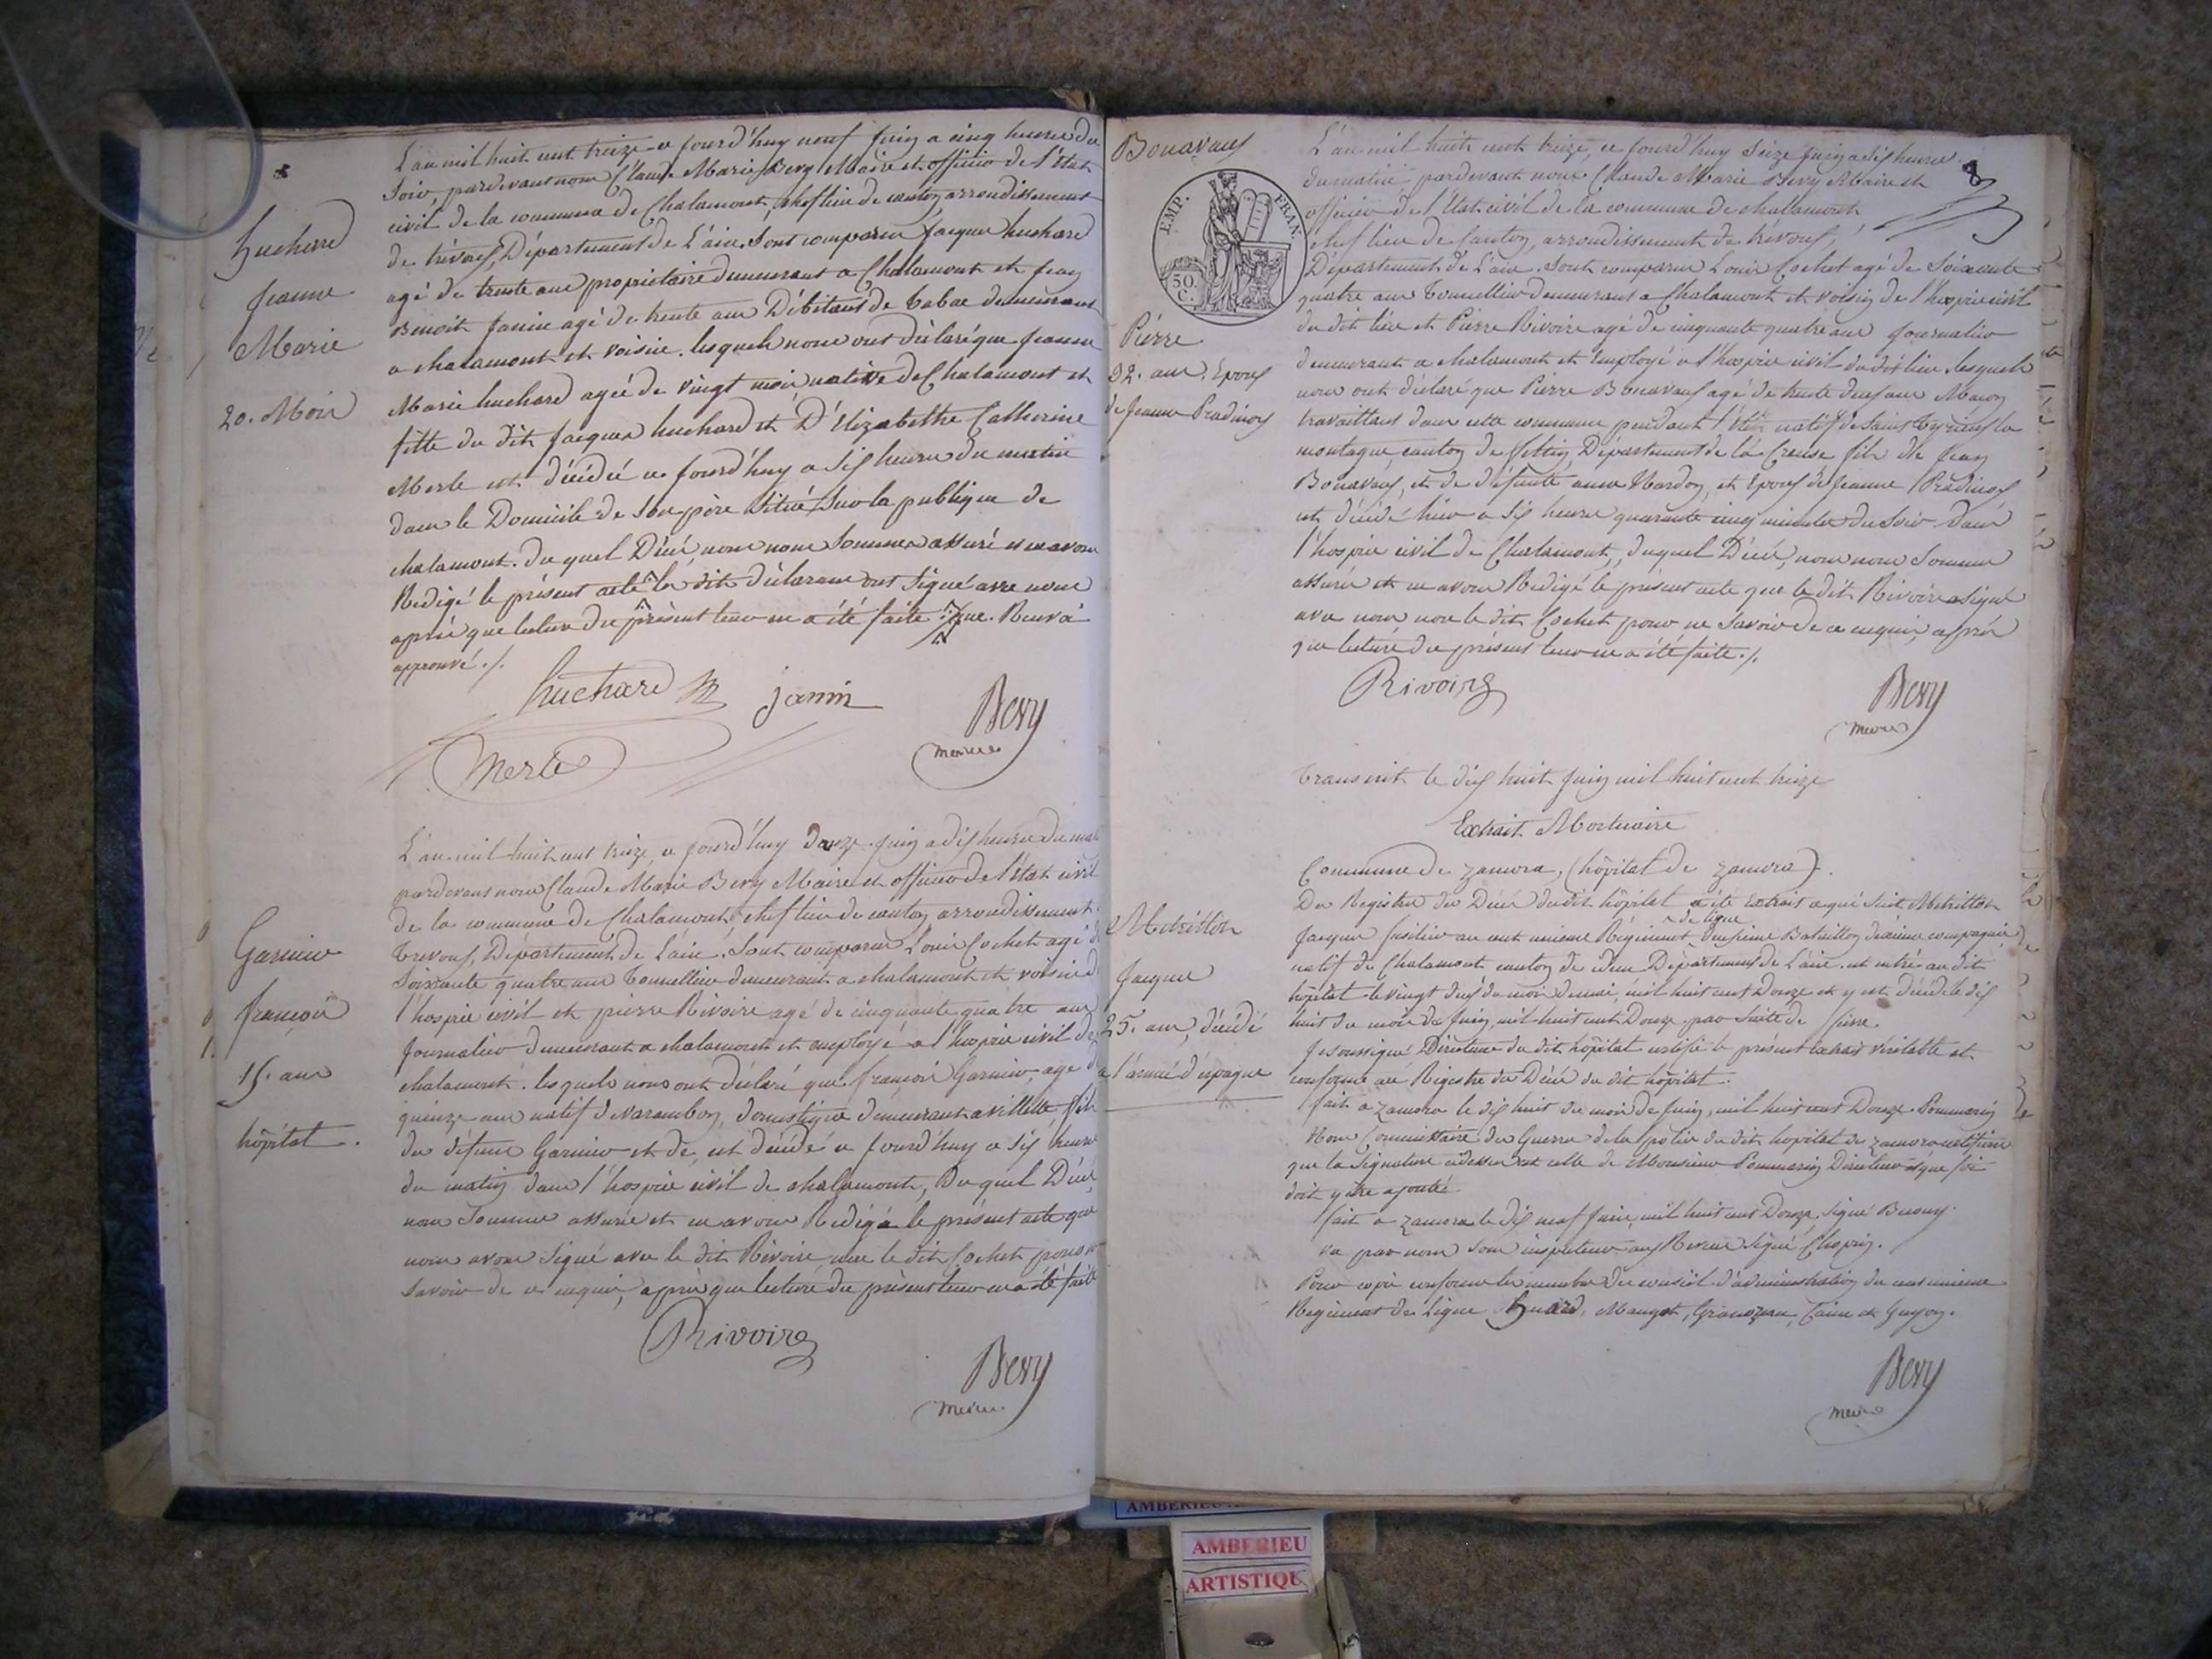 L'an mil huit cent treize ce jourd'huy neuf juin a cinq heures du
soir, pardevant nous Claude Marie Bevy Maire et officier de l'Etat
civil de la commune de Chalamont, chef lieu de canton, arrondissement
de trévoux, Département de L'ain. Sont comparus Jacques huchard
agé de trente ans proprietaire demeurant a Chalamont et
Benoit Janin agé de trente ans Débitant de tabac demeurant
a chalamont et voisin. lesquels nous ont déclaré que Jeanne
Marie huchard agée de vingt mois native de Chalamont et
fille du dit Jacques huchard et D'Elizabethe Catherine
Merle est décédée ce jourd'huy a six heures du matin
dans le Domicile de son père situé sur la publique de
chalamont. du quel Décès nous nous sommes assuré et en avons
Redigé le présent acte les dits déclarans ont signé avec nous
après que lecture du présent leur en a été faite
approuvé ./.
huchard janin Bevy
merle maire
huchard
Jeanne
Marie
20. Mois
L'an mil huit cent treize, ce jourd'huy douze juin a dix heures du
pardevant nous Claude Marie Bevy Maire et officier de l'état civil
de la commune de Chalamont, chef lieu de canton arrondissement
Trevoux, Département de L'ain. Sont comparus Louis Cochet agé
Soixante quatre ans Tonnellier demeurant a chalamont et voisin
l'hospice civil et pierre Rivoire agé de cinquante quatre ans
Journalier demeurant a chalamont et employé a l'hospice civil de
chalamont. lesquels nous ont déclaré que françois Garnier, agé
quinze ans natif de varambon, domestique demeurant a villette fils
du defunt Garnier et de, est décédé ce jourd'huy a six heures
du matin dans l'hospice civil de chalamont, Du quel Décès,
nous sommes assurés et en avons Redigé le présent acte que
nous avons signé avec le dit Rivoire, non le dit Cochet pour
savoir de ce enquis, après que lecture du présent leur en a été faite
Rivoire
Bevy
maire
Garnier
françois
15. ans
hôpital.
Bonavaux
EMP. FRAN.
50.
C.
Pierre
32. ans. Epoux
de Jeanne Pradinos
8
L'an mil huit cent treize, ce jourd'huy seize juin a dix heures
du matin pardevant nous Claude Marie Bevy Maire et
officier de l'Etat civil de la commune de chalamont
chef lieu de Canton, arrondissement de trévoux,
Département de L'ain. Sont comparus Louis Cochet agé de soixante
quatre ans Tonnellier demeurant a Chalamont et voisin de l'hospice civil
du dit lieu et Pierre Rivoire agé de cinquante quatre ans Journalier
demeurant a chalamont et Employé a l'hospice civil du dit lieu, lesquels
nous ont déclaré que Pierre Bonavaux agé de trente deux ans Maçon
travaillant dans cette commune pendant l'été natif de Saint la
montagne, canton de Département de la Creuse fils de Jean
Bonavaux, et de défunte anne Nardon, et Epoux de Jeanne Pradinos
est décédé hier a six heures quarante cinq minutes du soir dans
l'hospice civil de Chalamont, duquel Décès, nous nous sommes
assurés et en avons Redigé le présent acte que le dit Rivoire a signé
avec nous non le dit Cochet pour ne savoir de ce enquis, après
que lecture du présent leur en a été faite ./.
Rivoire
Bevy
maire
Transcrit le dix huit juin mil huit cent treize
Extrait Mortuaire
Commune de zamora, (hôpital de zamora).
Du Registre des Décès du dit hôpital a été Extrait ce qui suit
Jacques fusilier au cent onzieme Régiment de ligne Bataillon compagnie
natif de Chalamont canton de idem Département de L'ain est entré au dit
hôpital le vingt deux du mois de mai, mil huit cent Douze et y est décédé le dix
huit du mois de Juin, mil huit cent Douze par suite de fievre.
Je soussigné Directeur du dit hôpital certifié le présent extrait véritable et
conforme au Registre des Décès du dit hôpital.
fait a zamora le dix huit du mois de juin, mil huit cent Douze.
Nous Commissaire des Guerres de la police du dit hopital de zamora certifions
que la signature cidessus est celle de Monsieur Directeur et que foi
doit y être ajoutée.
fait a zamora le dix neuf Juin, mil huit cent Douze. signé
vu par nous sous inspecteur aux Revues signé Chopin.
Pour copie conforme les membres du conseil d'administration du cent onzieme
Regiment de Ligne
Bevy
maire
Jacques
25. ans, décédé
a l'armée d'espagne
AMBERIEU
ARTISTIQU